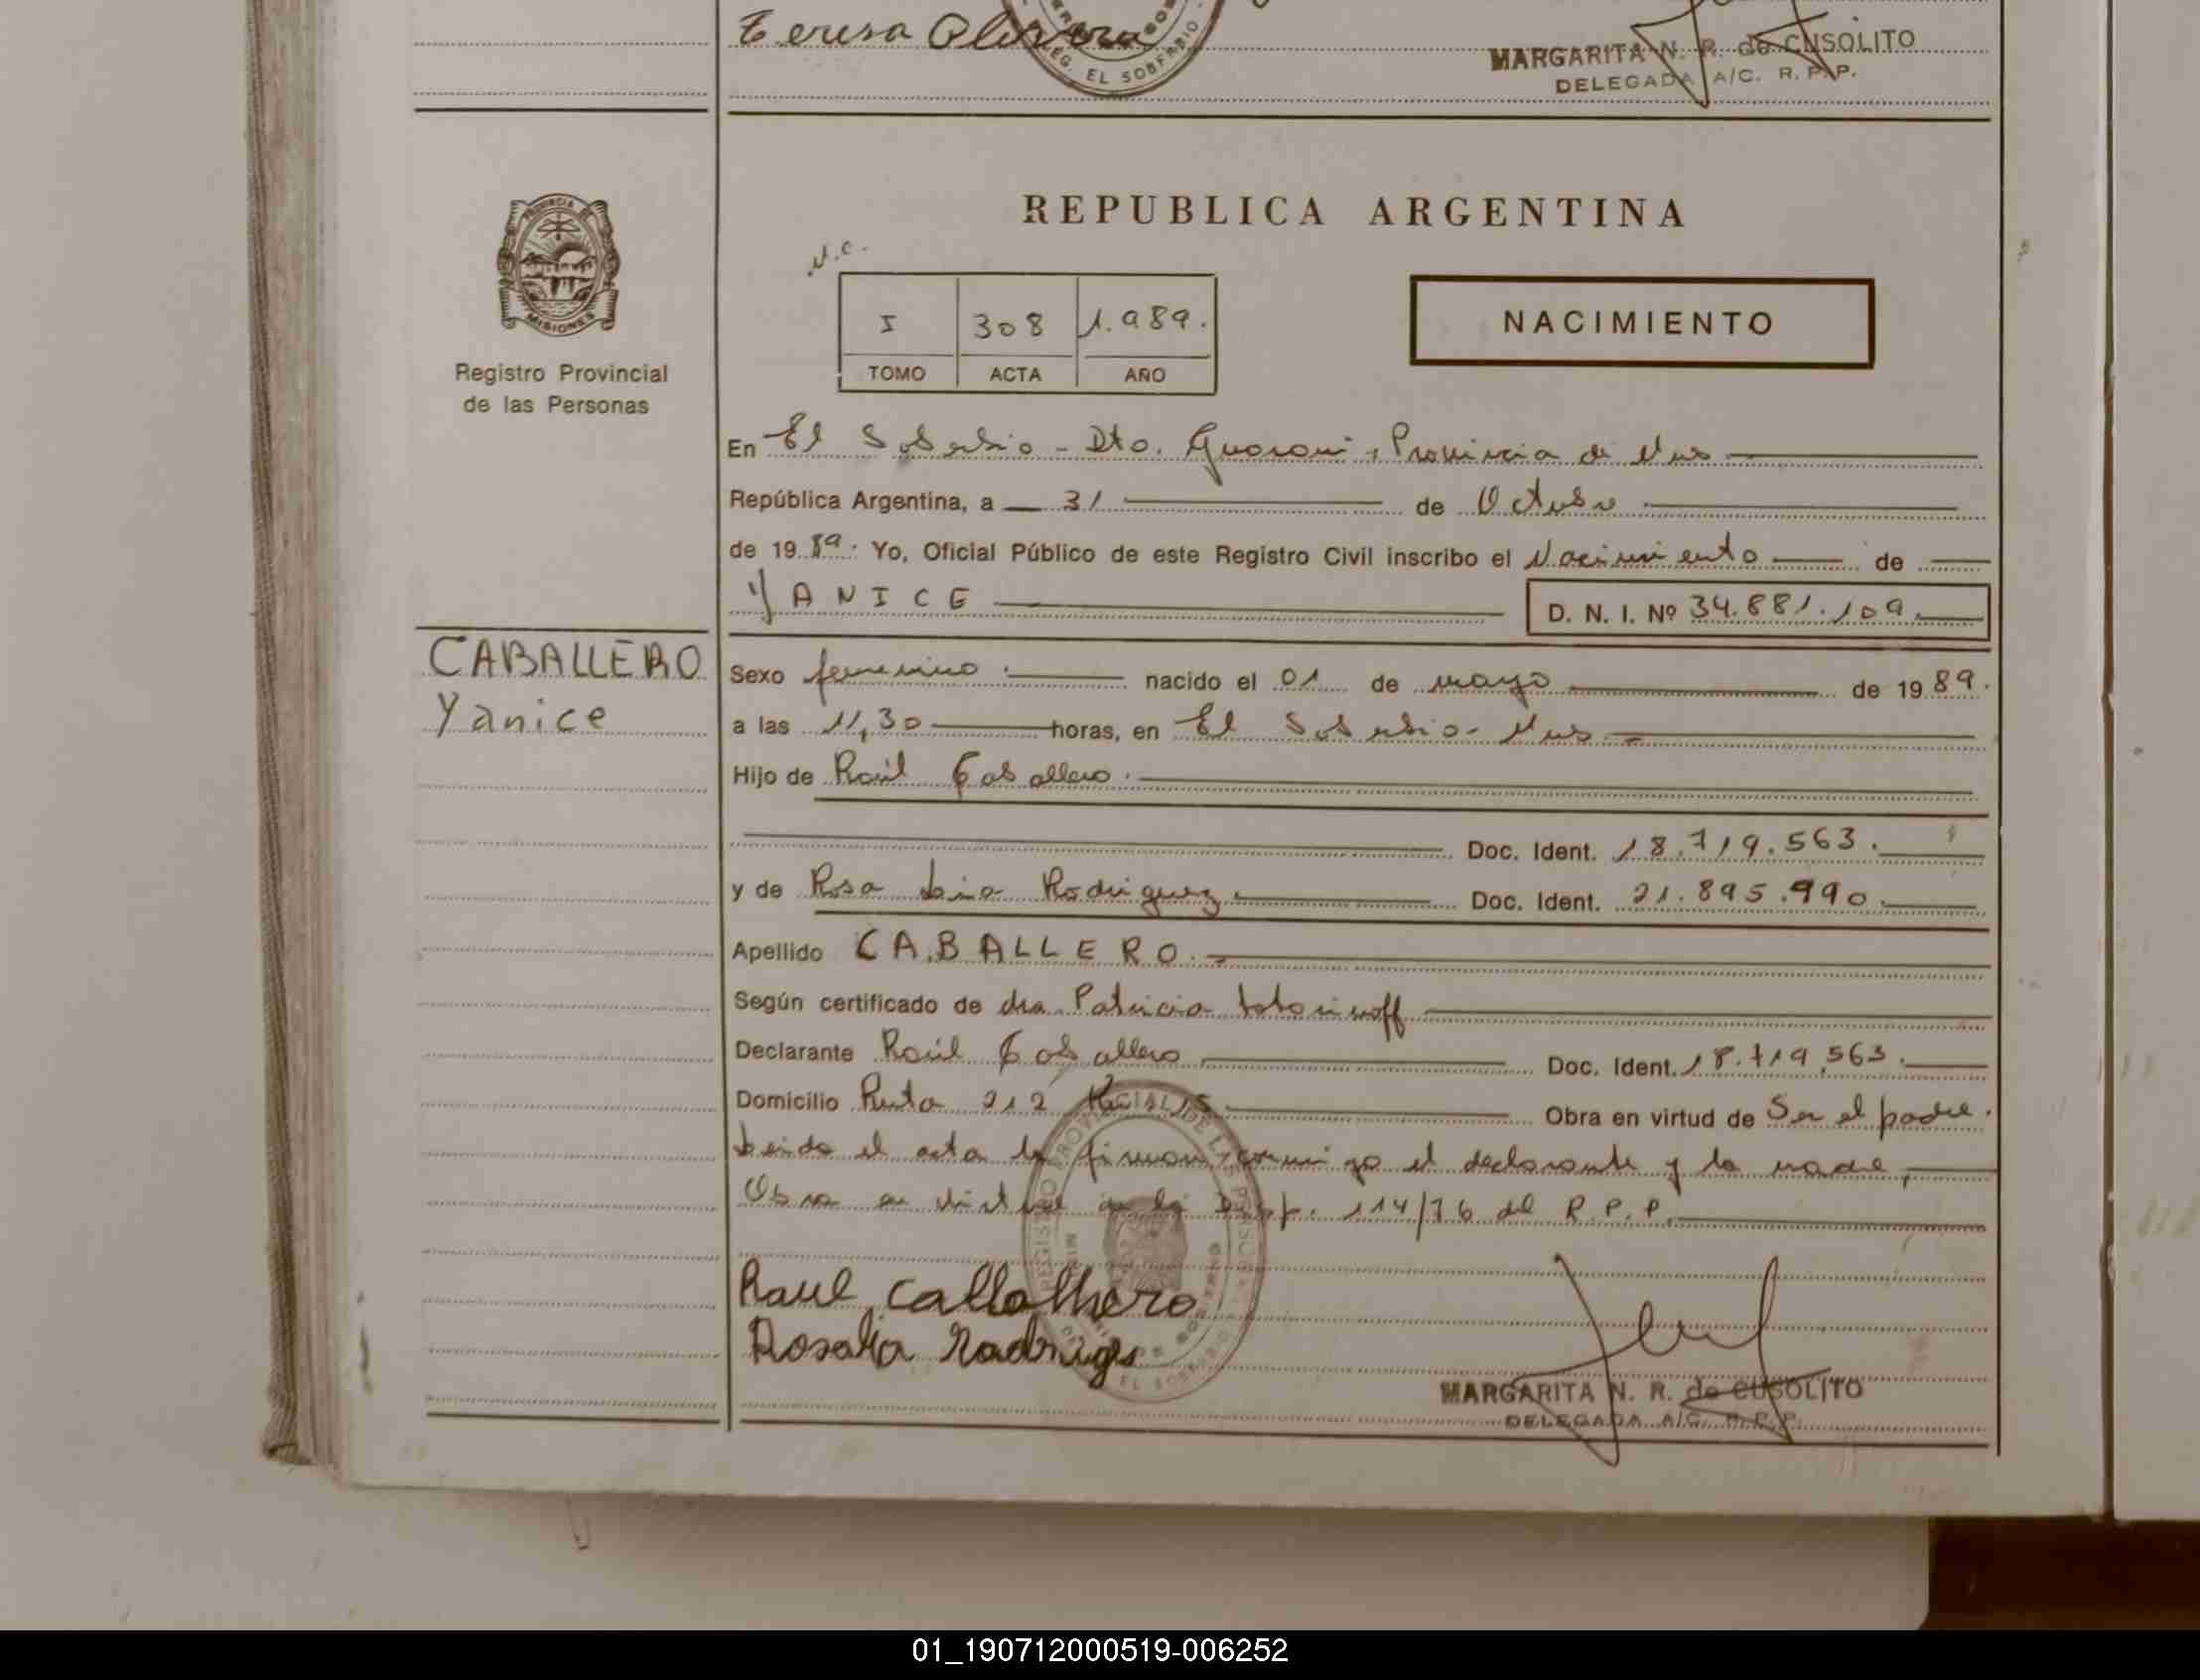 Teresa Olivera
REG. EL SOBERBIO
MARGARITA N. R. de CUSOLITO
DELEGADA A/C. R. P. P.
PROVINCIA DE
MISIONES
Registro Provincial
de las Personas
REPUBLICA ARGENTINA
I 308 1.989.
TOMO ACTA AÑO
NACIMIENTO
En El Soberbio - Dto. Guarani, Provincia de Mnes
República Argentina, a 31 de Octubre
de 1989. Yo, Oficial Público de este Registro Civil inscribo el Nacimiento de
YANICE D. N. I. Nº 34.881.109.
CABALLERO
Yanice
Sexo femenino. nacido el 01 de mayo de 1989.
a las 11,30 horas, en El Soberbio - Mnes
Hijo de Raúl Caballero.
Doc. Ident. 18.719.563.
y de Rosa Lia Rodriguez Doc. Ident. 21.895.990
Apellido CABALLERO.-
Según certificado de dra. Patricia
Declarante Raúl Caballero Doc. Ident. 18.719,563.
Domicilio Ruta 212 Km 15 Obra en virtud de Ser el padre.
Leida el acta la firman conmigo el declarante y la madre,
Obra en virtud de la Disp. 114/76 del R.P.P.
Raul Callalhero
Rosalia Radriges
MARGARITA N. R. de CUSOLITO
DELEGADA A/C. R. P. P.
01_190712000519-006252